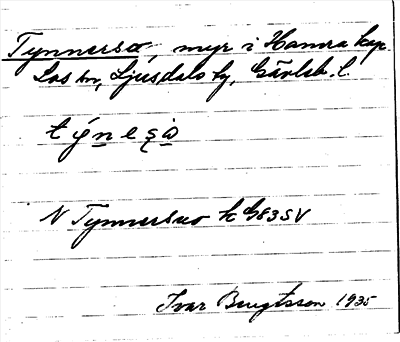 Tynnerså, myr i Hamra kap.
Los sn, Ljusdals tg, Gävleb. l.
týnesa
N Tynnerså k G83SV
Ivar Bengtsson 1935